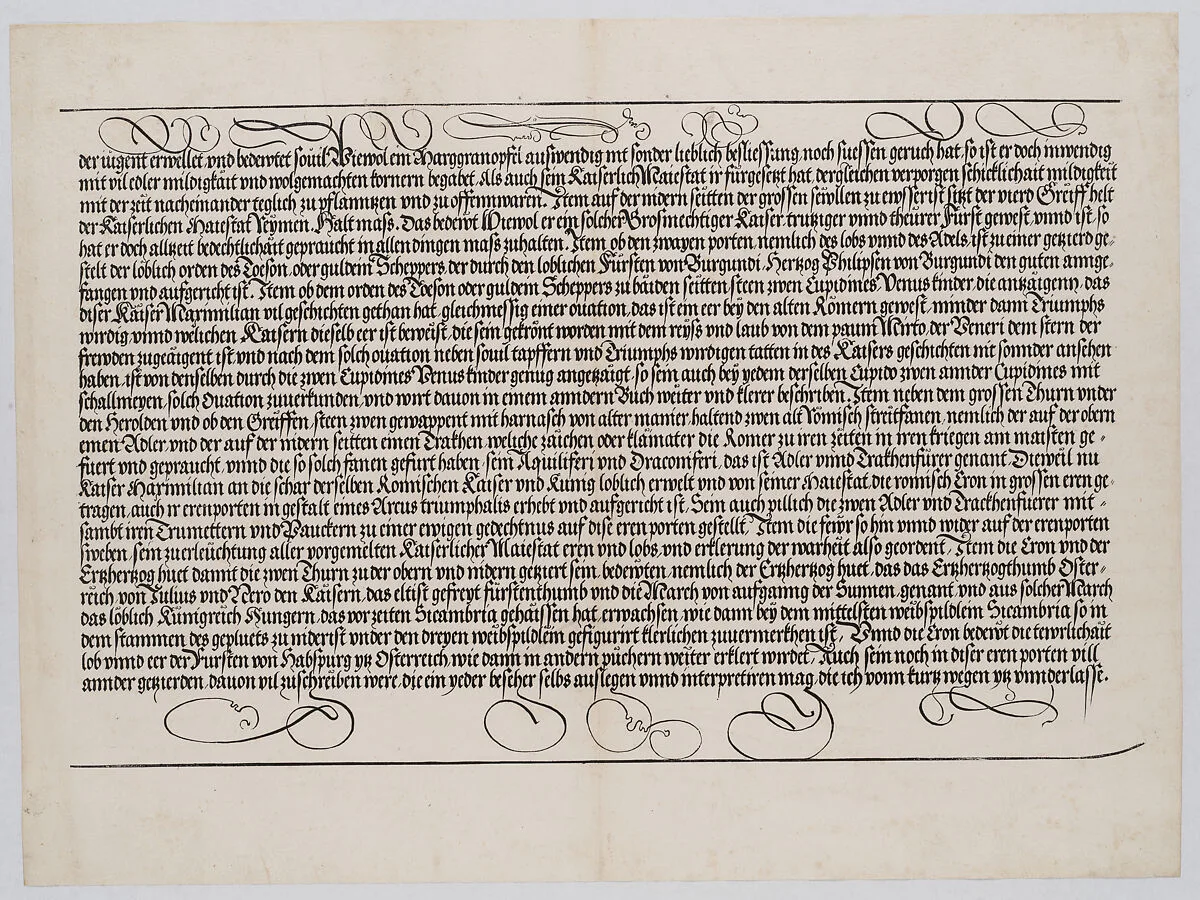 der iugent erwellet, vnd bedewtet souil, Wiewol ein Marggranopfel auswendig nit sonder lieblich besliessung, noch suessen geruch hat, so ist er doch inwendig
mit vil edler mildigkait vnd wolgemachten kornern begabet, Als auch sein Kaiserlich Maiestat ir fürgesetzt hat, dergleichen verporgen schicklichait mildigkeit
mit der zeit nacheinander teglich zu pflanntzen vnd zu offennwaren. Item auf der nidern seitten der grossen sewllen zu ewsserist sitzt der vierd Greiff helt
der Kaiserlichen Maiestat Reymen. Halt mass. Das bedewt Wiewol er ein solcher Grosmechtiger Kaiser, trutziger vnnd theurer Fürst gewest, vnnd ist, so
hat er doch alltzeit bedechtlichait gepraucht in allen dingen mass zuhalten. Item ob den zwayen porten, nemlich des lobs vnnd des Adels, ist zu einer getzierd ge-
stelt der löblich orden des Toeson, oder guldein Scheppers, der durch den loblichen Fürsten von Burgundi, Hertzog Philipsen von Burgundi den guten annge-
fangen vnd aufgericht ist. Item ob dem orden des Toeson oder guldem Scheppers zu baiden seitten steen zwen Cupidines Venus kinder, die antzaigenn, das
diser Kaiser Maximilian vil geschichten gethan hat, gleichmessig einer ouation, das ist ein eer bey den alten Römern gewest, minder dann Triumphs
wirdig, vnnd welichen Kaisern dieselb eer ist beweist, die sein gekrönt worden mit dem reyss vnd laub von dem paum Mirto, der Veneri dem stern der
frewden zugeaigent ist, vnd nach dem solch ouation neben souil tapffern vnd Triumphs wirdigen tatten in des Kaisers geschichten nit sonnder ansehen
haben, ist von denselben durch die zwen Cupidines Venus kinder genug angetzaigt, so sein auch bey yedem derselben Cupido zwen annder Cupidines mit
schallmeyen, solch Ouation zuuerkunden, vnd wirt dauon in einem anndern Buch weiter vnd klerer beschriben. Item neben dem grossen Thurn vnder
den Herolden vnd ob den Greiffen, steen zwen gewappent mit harnasch von alter manier, haltend zwen alt Römisch streitfanen, nemlich der auf der obern
einen Adler, vnd der auf der nidern seitten einen Trakhen, weliche zaichen oder klainater die Romer zu iren zeiten in iren kriegen am maisten ge-
fuert vnd gepraucht, vnnd die so solch fanen gefurt haben, sein Aquiliferi vnd Draconiferi, das ist Adler vnnd Trakhenfürer genant. Dieweil nu
Kaiser Maximilian an die schar derselben Romischen Kaiser vnd Kunig loblich erwelt vnd von seiner Maiestat, die romisch Cron in grossen eren ge-
tragen, auch ir erenporten in gestalt eines Arcus triumphalis erhebt vnd aufgericht ist. Sein auch pillich die zwen Adler vnd Trackhenfuerer mit-
sambt iren Trumettern vnd Pauckern zu einer ewigen gedechtnus auf dise eren porten gestellt, Item die fewr so hin vnnd wider auf der erenporten
sweben, sein zuerleuchtung aller vorgemelten Kaiserlicher Maiestat eren vnd lobs, vnd erklerung der warheit also geordent, Item die Cron vnd der
Ertzhertzog huet damit die zwen Thurn zu der obern vnd nidern getziert sein, bedewten, nemlich der Ertzhertzog huet, das das Ertzhertzogthumb Oster-
reich, von Julius vnd Nero den Kaisern, das eltist gefreyt fürstenthumb vnd die March von aufganng der Sunnen, genant, vnd aus solcher March
das löblich Künigreich Hungern, das vor zeiten Sicambria gehaissen hat, erwachsen, wie dann bey dem mittelsten weibspildlein Sicambria so in
dem stammen des gepluets zu niderist vnder den dreyen weibspildlein gefigurirt klerlichen zuuermerkhen ist, Vnnd die Cron bedewt die tewrlichait
lob vnnd eer der Fursten von Habspurg ytz Osterreich, wie dann in andern püchern weiter erklert wirdet, Auch sein noch in diser eren porten vill
annder getzierden, dauon vil zuschreiben were, die ein yeder beseher selbs auslegen vnnd interpretiren mag, die ich vonn kurtz wegen ytz vnnderlasse.